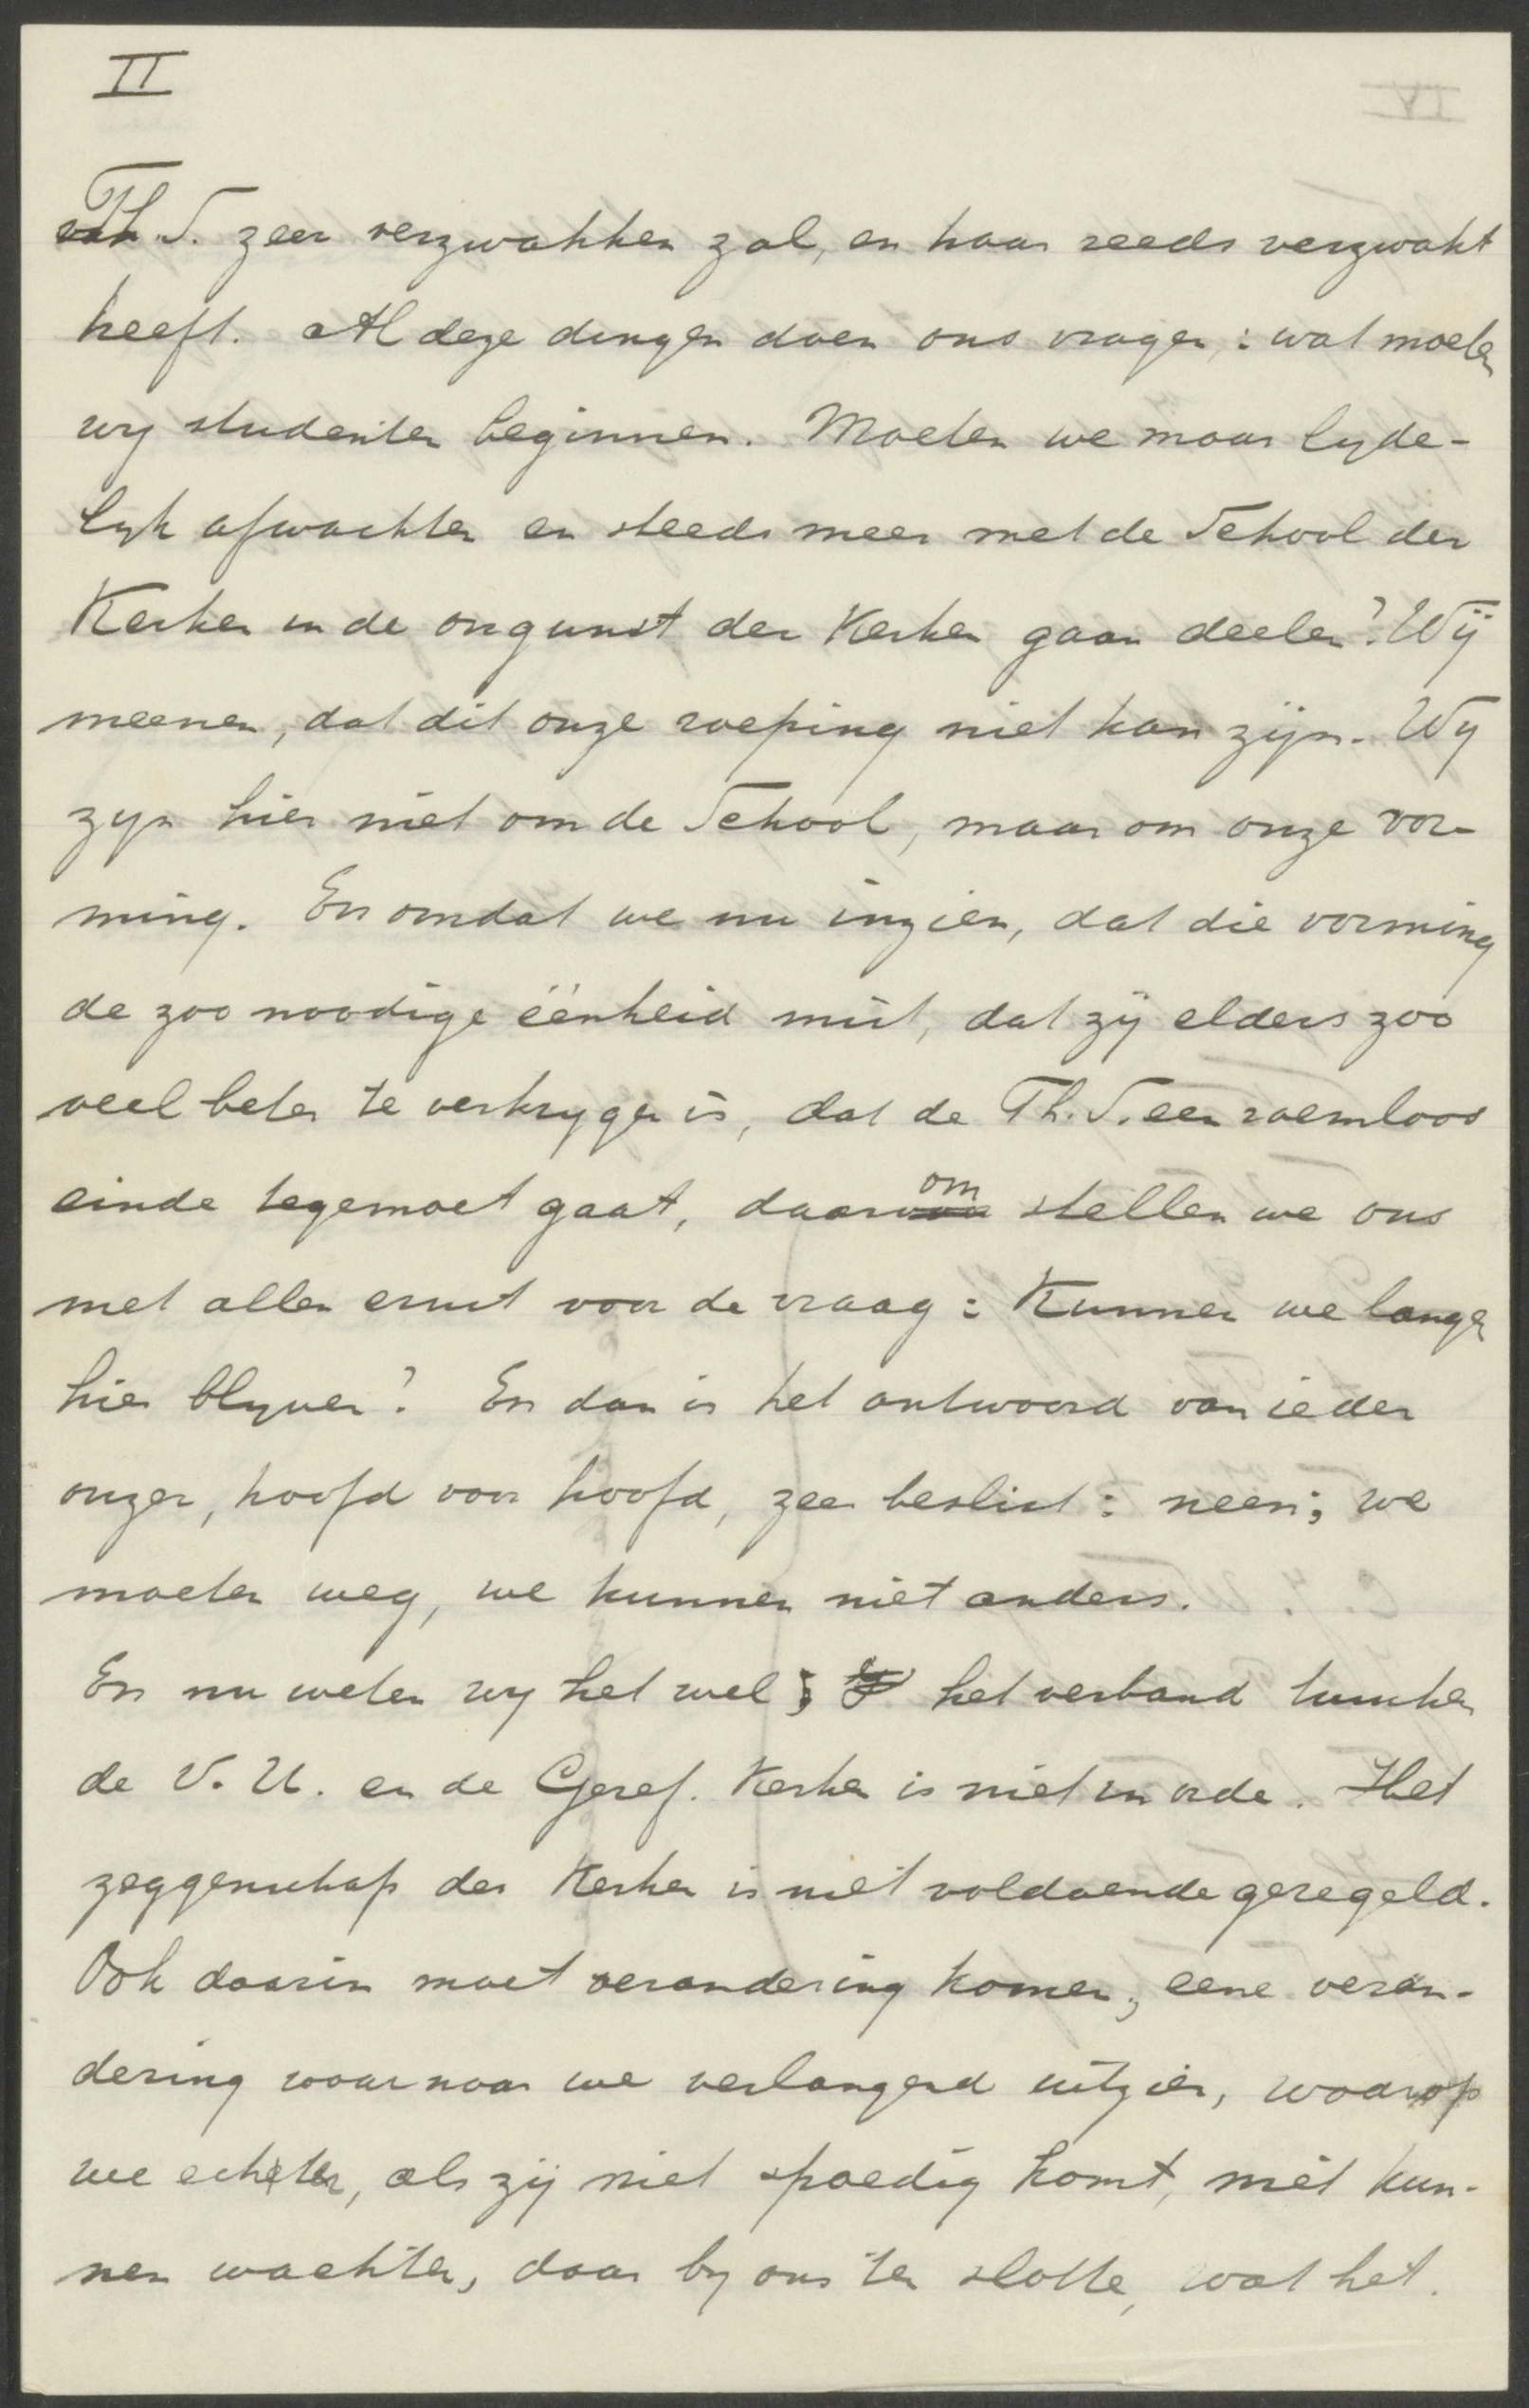 II
Th. S. zeer verzwakken zal, en haar reeds verzwakt
heeft. Al deze dingen doen ons vragen: wat moeten
wy studenten beginnen. Moeten we maar lyde-
lyk afwachten en steeds meer met de School der
Kerken in de ongunst der Kerken gaan deelen? Wij
meenen, dat dit onze roeping niet kan zijn. Wy
zyn hier niet om de School, maar om onze vor-
ming. En omdat we nu inzien, dat die vorming
de zoo noodige éénheid mist, dat zij elders zoo
veel beter te verkrygen is, dat de Th. S. een roemloos
einde tegemoet gaat, daarom stellen we ons
met allen ernst voor de vraag: Kunnen we langer
hier blyven? En dan is het antwoord van ieder
onzer, hoofd voor hoofd, zeer beslist: neen; we
moeten weg, we kunnen niet anders.
En nu weten wy het wel; het verband tusschen
de V. U. en de Geref. Kerken is niet in orde. Het
zeggenschap der Kerken is niet voldoende geregeld.
Ook daarin moet verandering komen, eene veran-
dering waarnaar we verlangend uitzien, waarop
we echter, als zij niet spoedig komt, niet kun-
nen wachten, daar by ons ten slotte, wat het